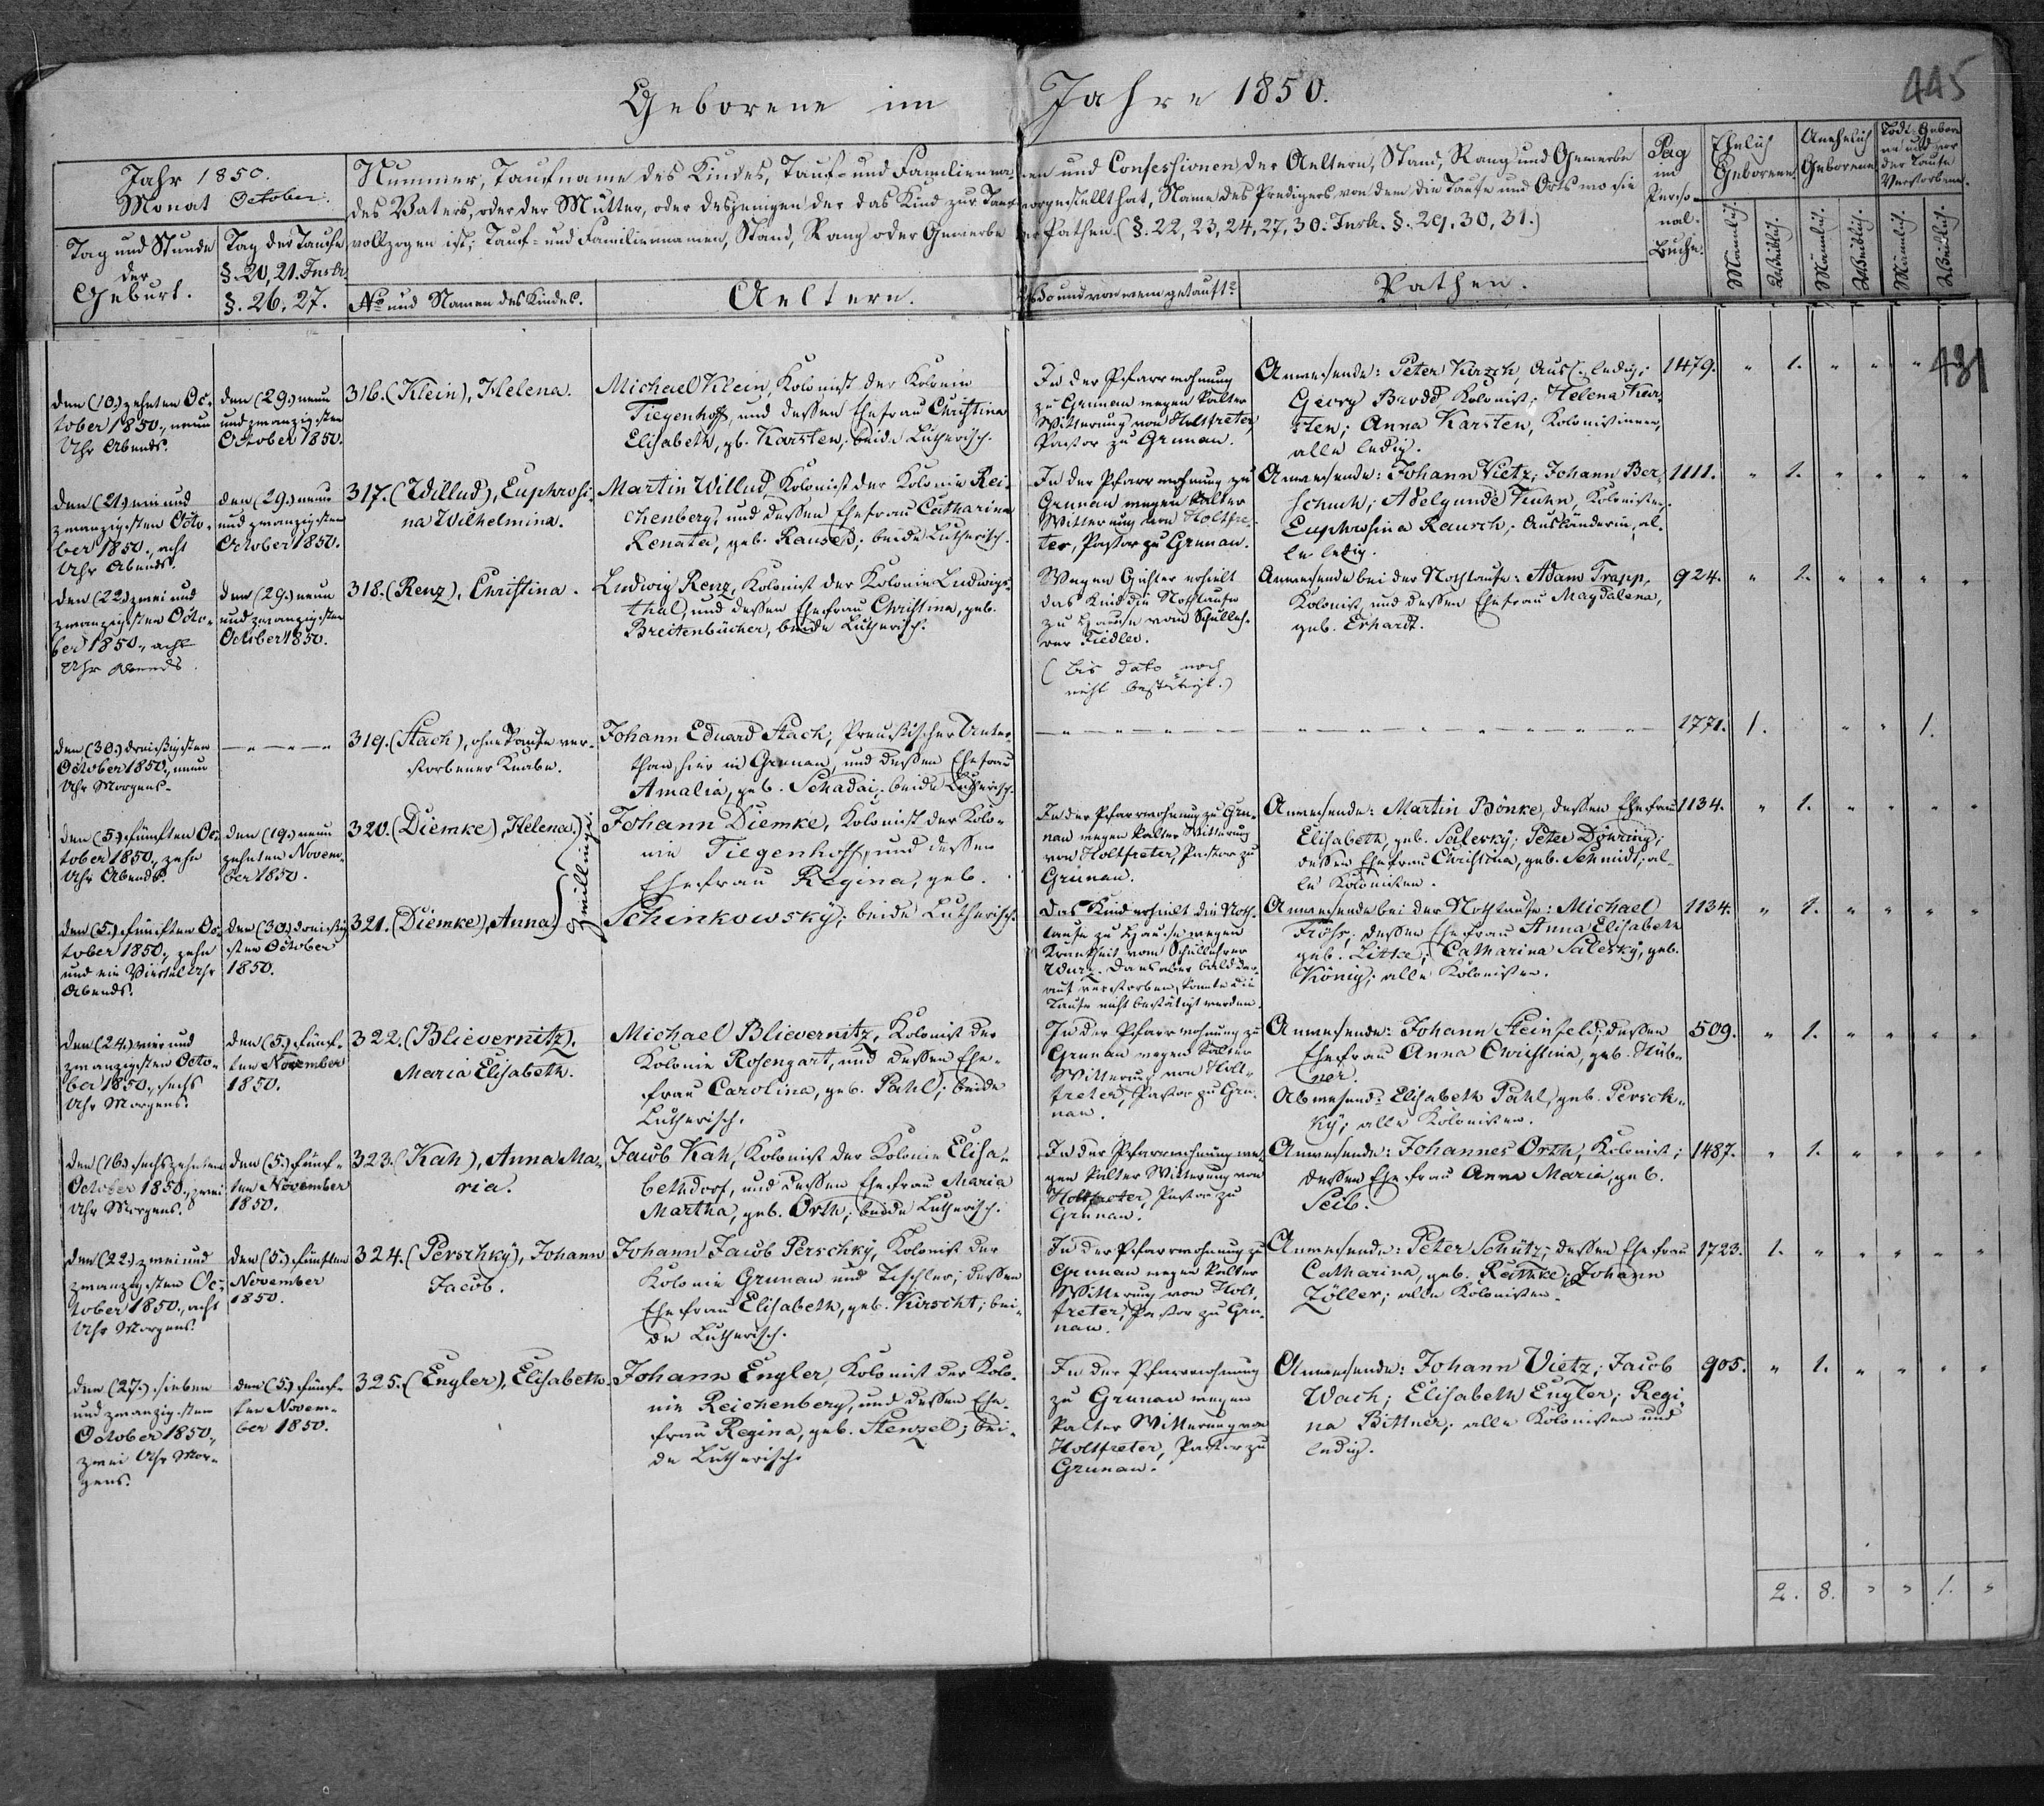 Geborene im Jahre 1850.
445
431
Jahr 1850.
Monat October.
Tag und Stunde
der
Geburt.
Tag der Taufe
§. 20, 21. Instr.
§. 26. 27.
Nummer, Taufname des Kindes, Tauf- und Familiennamen und Confessionen der Aeltern, Stand, Rang und Gewerbe
des Vaters, oder der Mutter, oder desjenigen der das Kind zur Taufe vorgestellt hat, Name des Predigers von dem die Taufe und Orts wo sie
vollzogen ist; Tauf- und Familiennamen, Stand, Rang oder Gewerbe der Pathen. (§. 22, 23, 24, 27, 30. Instr. §. 29, 30, 31.)
No und Namen des Kindes.
Aeltern.
Wo und von wem getauft?
Pathen.
Pag
im
Perso-
nal-
Buche.
Ehelich
Geborene
Unehelich
Geborene
Todt-Gebore
ne und vor
der Taufe
Verstorbene.
Männlich.
Weiblich.
Männlich.
Weiblich.
Männlich.
Weiblich.
den (10.) zehnten Oc-
tober 1850., neun
Uhr Abends.
den (29.) neun
und zwanzigsten
October 1850.
316. (Klein), Helena.
Michael Klein, Kolonist der Kolonie
Tiegenhoff, und dessen Ehefrau Christina
Elisabeth, gb. Karsten; beide Lutherisch.
In der Pfarrwohnung
zu Grunau wegen kalter
Witterung von Holtfreter,
Pastor zu Grunau.
Anwesende: Peter Kirsch, Ausl., ledig;
Georg Brodd Kolonist; Helena Kar-
sten; Anna Karsten, Kolonistinnen,
alle ledig.
1479. " 1. " " "
den (21.) ein und
zwanzigsten Octo-
ber 1850., acht
Uhr Abends.
den (29.) neun
und zwanzigsten
October 1850.
317. (Willud), Euphrosi-
na Wilhelmina.
Martin Willud, Kolonist der Kolonie Rei-
chenberg, und dessen Ehefrau Catharina
Renata, geb. Rausch; beide Lutherisch.
In der Pfarrwohnung zu
Grunau wegen kalter
Witterung von Holtfre-
ter, Pastor zu Grunau.
Anwesende: Johann Vietz; Johann Ber-
schuk; Adelgunde Kuhn, Kolonisten;
Euphrosina Rausch, Ausländerin, al-
le ledig.
1111. " 1. " " " "
den (22.) zwei und
zwanzigsten Octo-
ber 1850., acht
Uhr Abends.
den (29.) neun
und zwanzigsten
October 1850.
318. (Renz), Christina.
Ludwig Renz, Kolonist der Kolonie Ludwigs-
thal, und dessen Ehefrau Christina, geb.
Breitenbücher, beide Lutherisch.
Wegen Gichter erhielt
das Kind die Nothtaufe
zu Hause vom Schulleh-
rer Fiedler.
(bis dato noch
nicht bestätigt.)
Anwesende bei der Nothtaufe: Adam Trapp,
Kolonist, und dessen Ehefrau Magdalena,
geb. Erhardt.
924. " 1. " " " "
den (30.) dreißigsten
October 1850., neun
Uhr Morgens.
319. (Stach), ohne Taufe ver-
storbener Knabe.
Johann Eduard Stach, Preußischer Unter-
than, hier in Grunau, und dessen Ehefrau
Amalia, geb. Schadai; beide Lutherisch.
1771. 1. " " 1.
den (5.) fünften Oc-
tober 1850., zehn
Uhr Abends.
den (19.) neun
zehnten Novem-
ber 1850.
320. (Diemke), Helena.
Zwillinge.
Johann Diemke, Kolonist der Kolo-
nie Tiegenhoff, und dessen
Ehefrau Regina, geb.
Schinkowsky; beide Lutherisch.
In der Pfarrwohnung zu Gru-
nau wegen kalter Witterung
von Holtfreter, Pastor zu
Grunau.
Anwesende: Martin Bönke, dessen Ehefrau
Elisabeth, geb. Salesky; Peter Döhring;
dessen Ehefrau Christina, geb. Schmidt; al-
le Kolonisten.
1134. " 1. " " " "
den (5.) fünften Oc-
tober 1850., zehn
und ein Viertel Uhr
Abends.
den (30.) dreißig
sten October
1850.
321. (Diemke), Anna.
Das Kind erhielt die Noth-
taufe zu Hause wegen
Krankheit vom Schullehrer
Wurz. Da es aber bald dar-
auf verstorben, konnte die
Taufe nicht bestätigt werden.
Anwesende bei der Nothtaufe: Michael
Fröhs; dessen Ehefrau Anna Elisabeth
geb. Litke; Catharina Salesky, geb.
König; alle Kolonisten.
1134. " 1. " " " "
den (24.) vier und
zwanzigsten Octo-
ber 1850., sechs
Uhr Morgens.
den (5.) fünf-
ten November
1850.
322. (Blievernitz),
Maria Elisabeth.
Michael Blievernitz, Kolonist der
Kolonie Rosengart, und dessen Ehe-
frau Carolina, geb. Pahl; beide
Lutherisch.
In der Pfarrwohnung zu
Grunau wegen kalter
Witterung von Holt-
freter, Pastor zu Gru-
nau.
Anwesende: Johann Steinfeld; dessen
Ehefrau Anna Christina, geb. Hüb-
ner.
Abwesend: Elisabeth Pahl, geb. Persch-
ky; alle Kolonisten.
509. " 1. " " " "
den (16.) sechszehnten
October 1850., zwei
Uhr Morgens.
den (5.) fünf-
ten November
1850.
323. (Kah), Anna Ma-
ria.
Jacob Kah, Kolonist der Kolonie Elisa-
bethdorf, und dessen Ehefrau Maria
Martha, geb. Orth; beide Lutherisch.
In der Pfarrwohnung we-
gen kalter Witterung von
Holtfreter, Pastor zu
Grunau.
Anwesende: Johannes Orth, Kolonist;
dessen Ehefrau Anna Maria, geb.
Seib.
1487. " 1. " " " "
den (22.) zwei und
zwanzigsten Oc-
tober 1850., acht
Uhr Morgens.
den (5.) fünften
November
1850.
324. (Perschky), Johann
Jacob.
Johann Jacob Perschky, Kolonist der
Kolonie Grunau und Tischler; dessen
Ehefrau Elisabeth, geb. Kirscht; bei-
de Lutherisch.
In der Pfarrwohnung zu
Grunau wegen kalter
Witterung von Holt-
freter, Pastor zu Gru-
nau.
Anwesende: Peter Schütz; dessen Ehefrau
Catharina, geb. Rathke; Johann
Zöller; alle Kolonisten.
1723. 1. " " " " "
den (27.) sieben
und zwanzigsten
October 1850.,
zwei Uhr Mor-
gens.
den (5.) fünf-
ten Novem-
ber 1850.
325. (Engler), Elisabeth.
Johann Engler, Kolonist der Kolo-
nie Reichenberg, und dessen Ehe-
frau Regina, geb. Stenzel; bei-
de Lutherisch.
In der Pfarrwohnung
zu Grunau wegen
kalter Witterung von
Holtfreter, Pastor zu
Grunau.
Anwesende: Johann Vietz; Jacob
Wach; Elisabeth Engler; Regi-
na Bittner; alle Kolonisten und
ledig.
905. " 1. " " " "
2. 8. " " 1. "